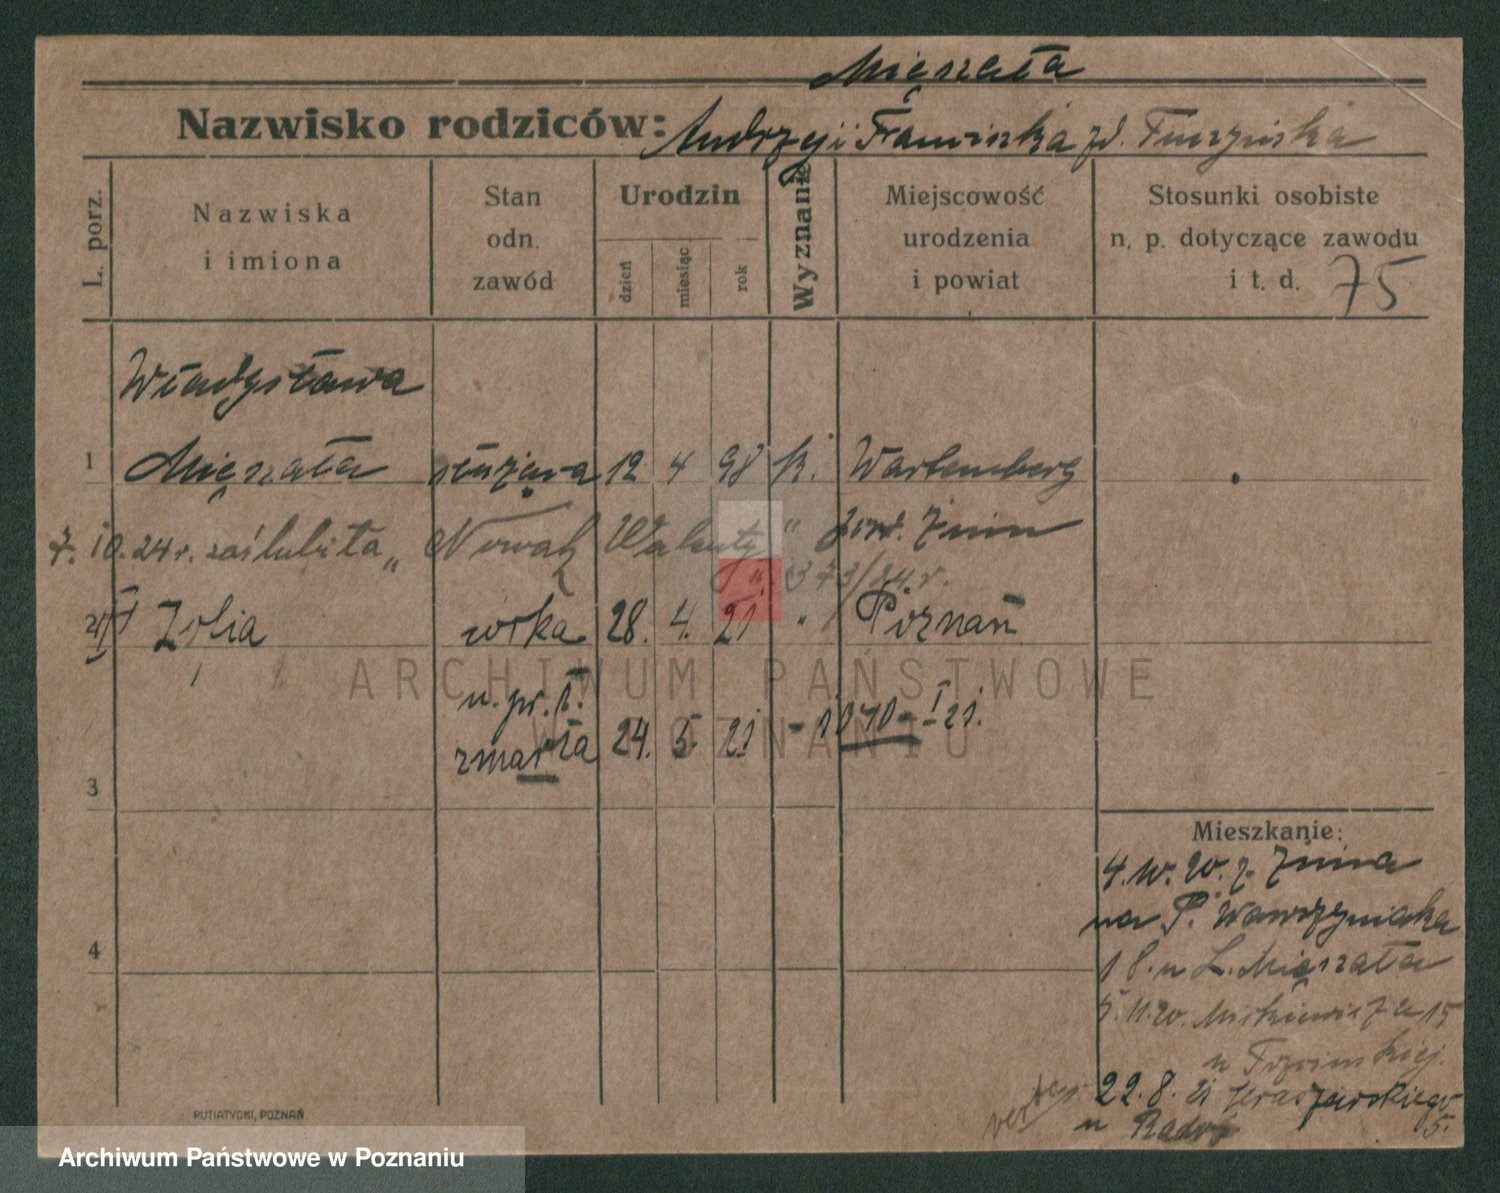 Mięszała
Nazwisko rodziców: Andrzej i Franciszka zd.
L. porz.
Nazwiska i imiona
Stan odn. zawód
Urodzin
dzień
miesiąc
rok
Wyznanie
Miejscowość urodzenia i powiat
Stosunki osobiste n. p. dotyczące zawodu i t. d. 75
Władysława
1 Mięszała służąca 12 4 98 k. Wartemberg
7. 10. 24 r. zaślubiła „ Nowak Walenty " pow. Żnin
373/24. r.
2 Zofia córka 28. 4. 21 " Poznań
u. pr. I.
zmarła 24. 5. 21 - 1070 - I 21.
3
Mieszkanie:
4. 10. 20. z Żnina
na P. Wawrzyniaka
4
18. u L. Mięszała
5. 11. 20. Mickiewicza 15
u
22. 8. 21 Kraszewskiego 5.
u
PUTIATYCKI, POZNAŃ
ARCHIWUM PAŃSTWOWE
W POZNANIU
Archiwum Państwowe w Poznaniu